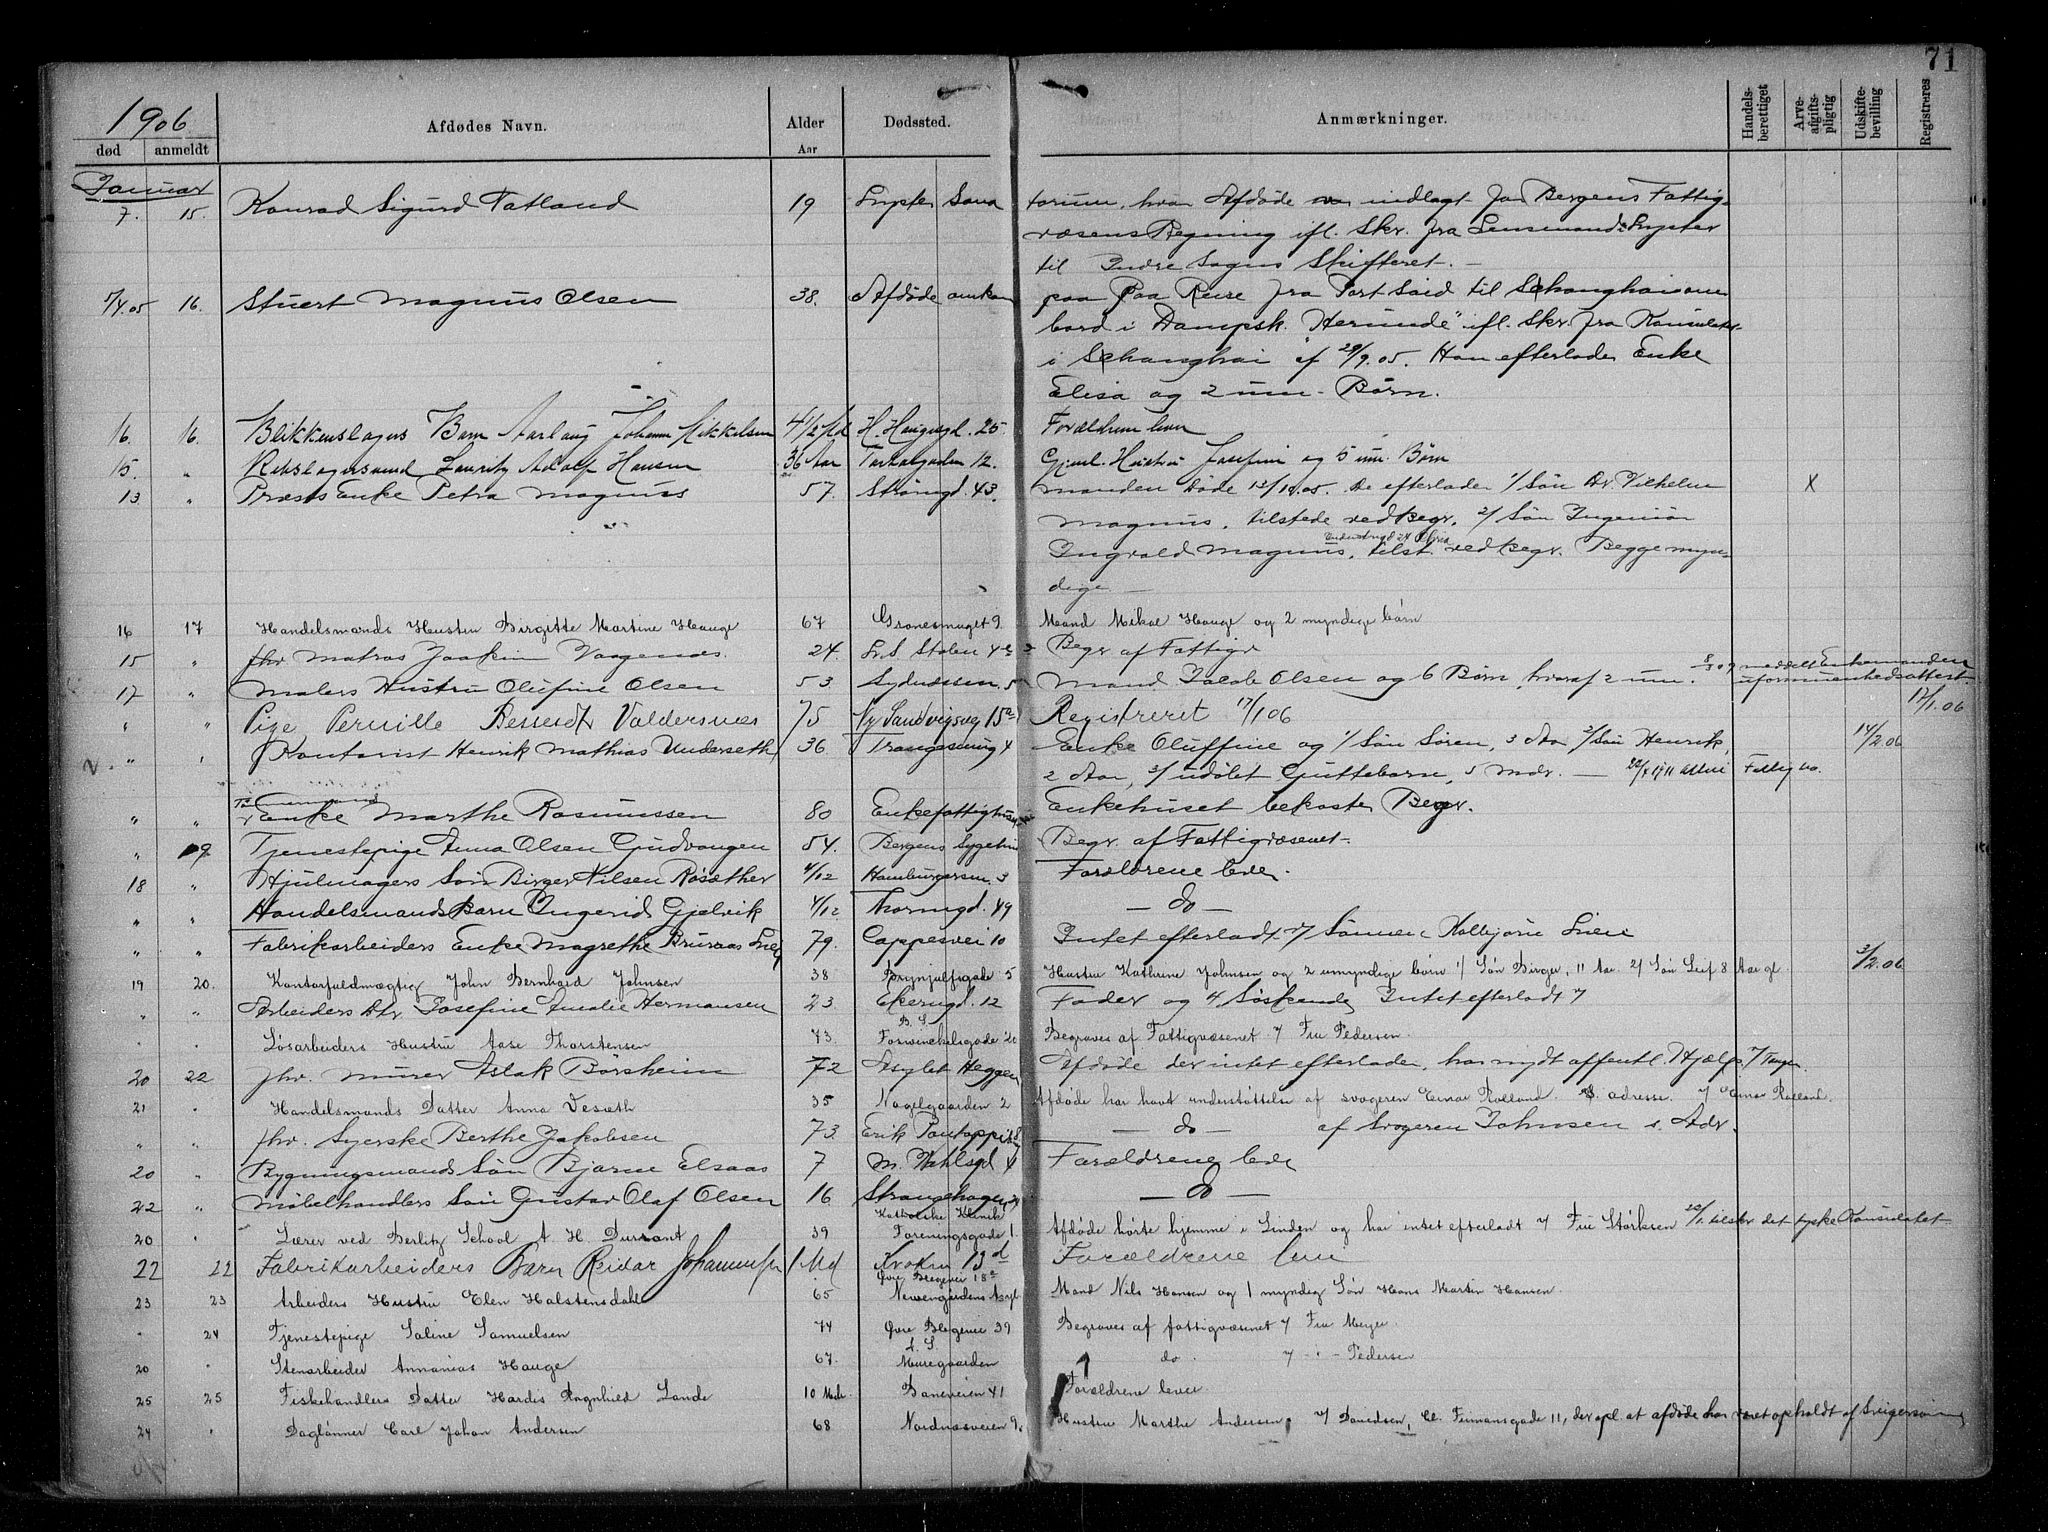 71
1906
død anmeldt Afdødes Navn. Alder Aar Dødssted. Anmærkninger. Handelsberettiget Arveafgiftspligtig Udskiftebevilling Registreres
Januar
7. 15. Konrad Sigurd Tatland 19 Lyster Sana torium, hvor Afdøde var indlagt for Bergens Fattig-
væsens Regning ifl. Skr. fra Lensmand i Lyster
til Indre Sogns Skifteret. —
7/4.05 16. Stuert Magnus Olsen 38. Afdøde omkom
paa Reise fra Port Said til Schanghai om
bord i Dampsk. ifl. Skr. fra Konsulatet
i Schanghai af 29/9.05. Han efterlader Enke
Elisa og 2 um. Børn.
16. 16. Blikkenslagers Barn Aarlaug Johanne Mikkelsen 4 1/2 Md H. Haugesgd. 25. Forældrene lever
15. " Rebslagersvend Lauritz Adolf Hansen 36 Aar 12. Gjenl. Hustru Josefine og 5 um. Børn
13 " Præsts Enke Petra Magnus 57. Strømgd. 43. Manden døde 13/10.05. De efterlader 1/ Søn Dr. Vilhelm X
Magnus, tilstede ved Begr. 2/ Søn Ingeniør
Ingvald Magnus, tilst. ved Begr. Begge myn-
dige. —
16 17 Handelsmands Hustru Birgitte Martine Hauge 67 9. Mand Mikal Hauge og 2 myndige børn
15 " fhv. Matros Joakim Vaagenes. 24. Begr. af Fattigv.
17 " Malers Hustru Olufine Olsen 53 Sydnessm. 5 Mand Jacob Olsen og 6 Børn, hvoraf 2 um. meddelt Enkemanden
uformuenhedsattest.
" " Pige Pernille Valdersnæs 75 Ny Sandvigsvej 15a Registreret 17/1 06 17/1.06
" " Kontorist Henrik Mathias Underseth 36. Trangesmug 4 Enke Oluffine og 1/ Søn Søren, 3 Aar 2/ Søn Henrik, 14/2.06
2 Aar, 3/ udøbt Guttebarn, 5 Mdr. —
" " Enke Marthe Rasmussen 80 Enkefattighuset Enkehuset bekoster Begr.
" 19 Tjenestepige Anna Olsen Gudvangen 54. Bergens Sygehus Begr. af Fattigvæsenet.
18 " Hjulmagers Søn Birger Nilsen Røsæther 4/12 Hamburgersm. 3 Forældrene lever.
" " Handelsmands Barn Ingerid Gjelvik 4/12 Thormgd. 49 — do —
" " Fabrikarbeiders Enke Magrethe Bruraas 79. Cappesvei 10 Intet efterladt 7/ Sønnen Kolbjørn Lien
19 20. Kontorfuldmægtig John Bernhard Johnsen 38 Brynjulfsgade 5 Hustru Kathrine Johnsen og 2 umyndige børn 1/ Søn Birger, 11 Aar 2/ Søn Leif 8 Aar gl. 3/2.06
" " Arbeiders Dtr Josefine Amalie Hermansen 23 Ekerngd. 12 Fader og 4 Søskende Intet efterladt 7
" " Løsarbeiders Hustru Aase Thorstensen 73 Forswinckelsgade 2c Begraves af Fattigvæsenet 7 Fru Pedersen.
20 22 fhv. Murer Aslak Børsheim 72 Asylet Heggen Afdøde der intet efterlader, har nydt offentl. Hjælp.
21 " Handelsmands Datter Anna Vesæth 35 Nøgelgaarden 2 Afdøde har havt understøttelse af svogeren Einar Rolland. S. adresse. 7 Einar Rolland.
" " fhv. Syerske Berthe Jakobsen 73. Erik Pontoppids 8 — do — af Svogeren Johnsen s. Adr.
20 " Bygningsmands Søn Bjarne Elsaas 7 M. Wahlsgd 4 Forældrene lever
22 " Møbelhandlers Søn Gustav Olaf Olsen 16 Strangehagen — do —
20 " Lærer ved Berlitz School A. H. Durrant 39 Katholske Klinik Foreningsgade 1. Afdøde hørte hjemme i Linden og har intet efterladt 7 Fru Størksen tilskr. det tyske Konsulatet
22 22 Fabrikarbeiders Barn Reidar Johannesen 1 Md Kroken 13d Forældrene lever
23 23 Arbeiders Hustru Elen Halstensdahl 65 Øvre Blegevei 18a Nevengaardens Asyl Mand Nils Hansen og 1 myndig Søn Hans Martin Hansen.
" 24 Tjenestepige Saline Samuelsen 74 Øvre Blegevei 39 Begraves af fattigvæsenet 7 Fru Meyer.
20 " Stenarbeider Annanias Hauge 67. Muregaarden do. 7 - " - Pedersen
25 25 Fiskehandlers Datter Hardis Ragnhild Lande 10 Mdr. Baneveien 41 Forældrene lever
24 " Daglønner Carl Johan Andersen 68 Nordnæsveien 9. Hustru Marthe Andersen, 7 Davidsen, Cl. Fimansgade 11, der opl. at afdøde har været opholdt af Svigersønnen